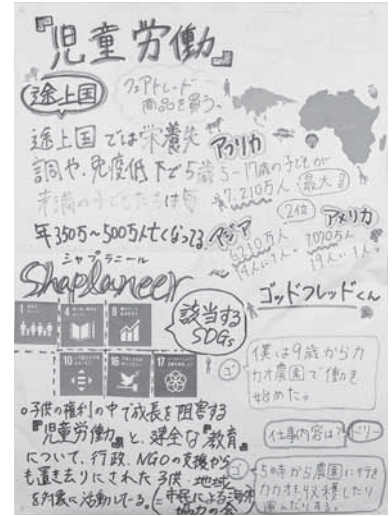 『児童労働』
途上国
フェアトレード
商品を買う。
途上国では栄養失
調や、免疫低下で5歳
未満の子どもたちは毎
年350万～500万人亡くなってる。
アフリカ
5-17歳の子どもが
7,210万人
最大
2位
アジア
6210万人
14人に1人。
アメリカ
19人に1人。
シャプラニール
Shaplaneer
1
4
8
10
16
17
該当する
SDGs
ゴッドフレッドくん
ゴ
僕は9歳からカ
カオ農園で働き
始めた。
仕事内容は?
ゴ
5時から農園に行き
カカオを収穫したり
運んだりする。
○子供の権利の中で成長を阻害する
『児童労働』と、健全な『教育』
について、行政、NGOの支援から
も置き去りにされた子供・地域
を対象に活動している。
市民による海外
協力の会